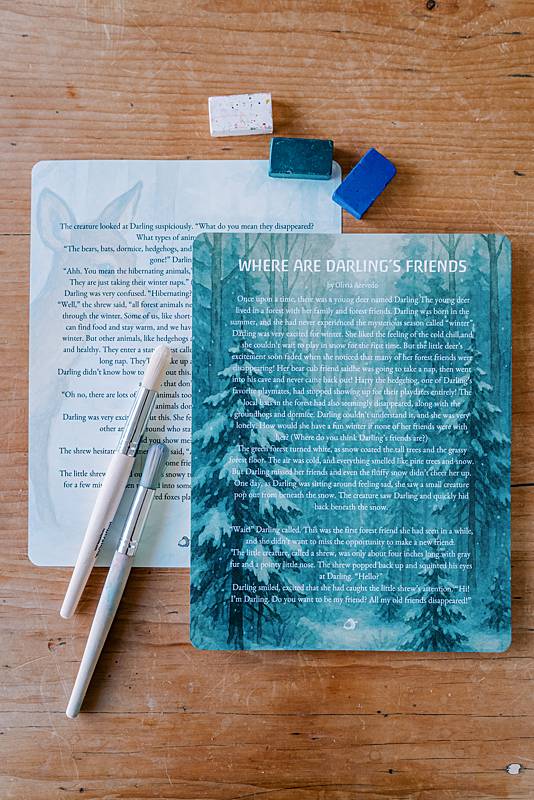 The creature looked at Darling suspiciously. “What do you mean they disappeared?
What types of anim
“The bears, bats, dormice, hedgehogs, and
gone!” Darlin
“Ahh. You mean the hibernating animals,
They are just taking their winter naps.”
Darling was very confused. “Hibernating?
“Well,” the shrew said, “all forest animals ne
through the winter. Some of us, like short-
can find food and stay warm, and we have
winter. But other animals, like hedgehogs
and healthy. They enter a stat call
long nap. They ke up
Darling didn’t know how to out this.
that don’
“Oh no, there are lots of animals too
animals don
Darling was very excit ut this. She
other a round who stay
you show me
The shrew hesitate said, “A
ome frie
The little shrew out o
for a few mi en
ed foxes pla
WHERE ARE DARLING’S FRIENDS
by Olivia Azevedo
Once upon a time, there was a young deer named Darling. The young deer
lived in a forest with her family and forest friends. Darling was born in the
summer, and she had never experienced the mysterious season called “winter”.
Darling was very excited for winter. She liked the feeling of the cold chill and
she couldn’t wait to play in snow for the first time. But the little deer’s
excitement soon faded when she noticed that many of her forest friends were
disappearing! Her bear cub friend said he was going to take a nap, then went
into his cave and never came back out! Harry the hedgehog, one of Darling’s
favorite playmates, had stopped showing up for their playdates entirely! The
local bats in the forest had also seemingly disappeared, along with the
groundhogs and dormice. Darling couldn’t understand it, and she was very
lonely. How would she have a fun winter if none of her friends were with
her? (Where do you think Darling’s friends are?)
The green forest turned white, as snow coated the tall trees and the grassy
forest floor. The air was cold, and everything smelled like pine trees and snow.
But Darling missed her friends and even the fluffy snow didn’t cheer her up.
One day, as Darling was sitting around feeling sad, she saw a small creature
pop out from beneath the snow. The creature saw Darling and quickly hid
back beneath the snow.
“Wait!” Darling called. This was the first forest friend she had seen in a while,
and she didn’t want to miss the opportunity to make a new friend.
The little creature, called a shrew, was only about four inches long with gray
fur and a pointy little nose. The shrew popped back up and squinted his eyes
at Darling. “Hello?”
Darling smiled, excited that she had caught the little shrew’s attention. “Hi!
I’m Darling. Do you want to be my friend? All my old friends disappeared!”